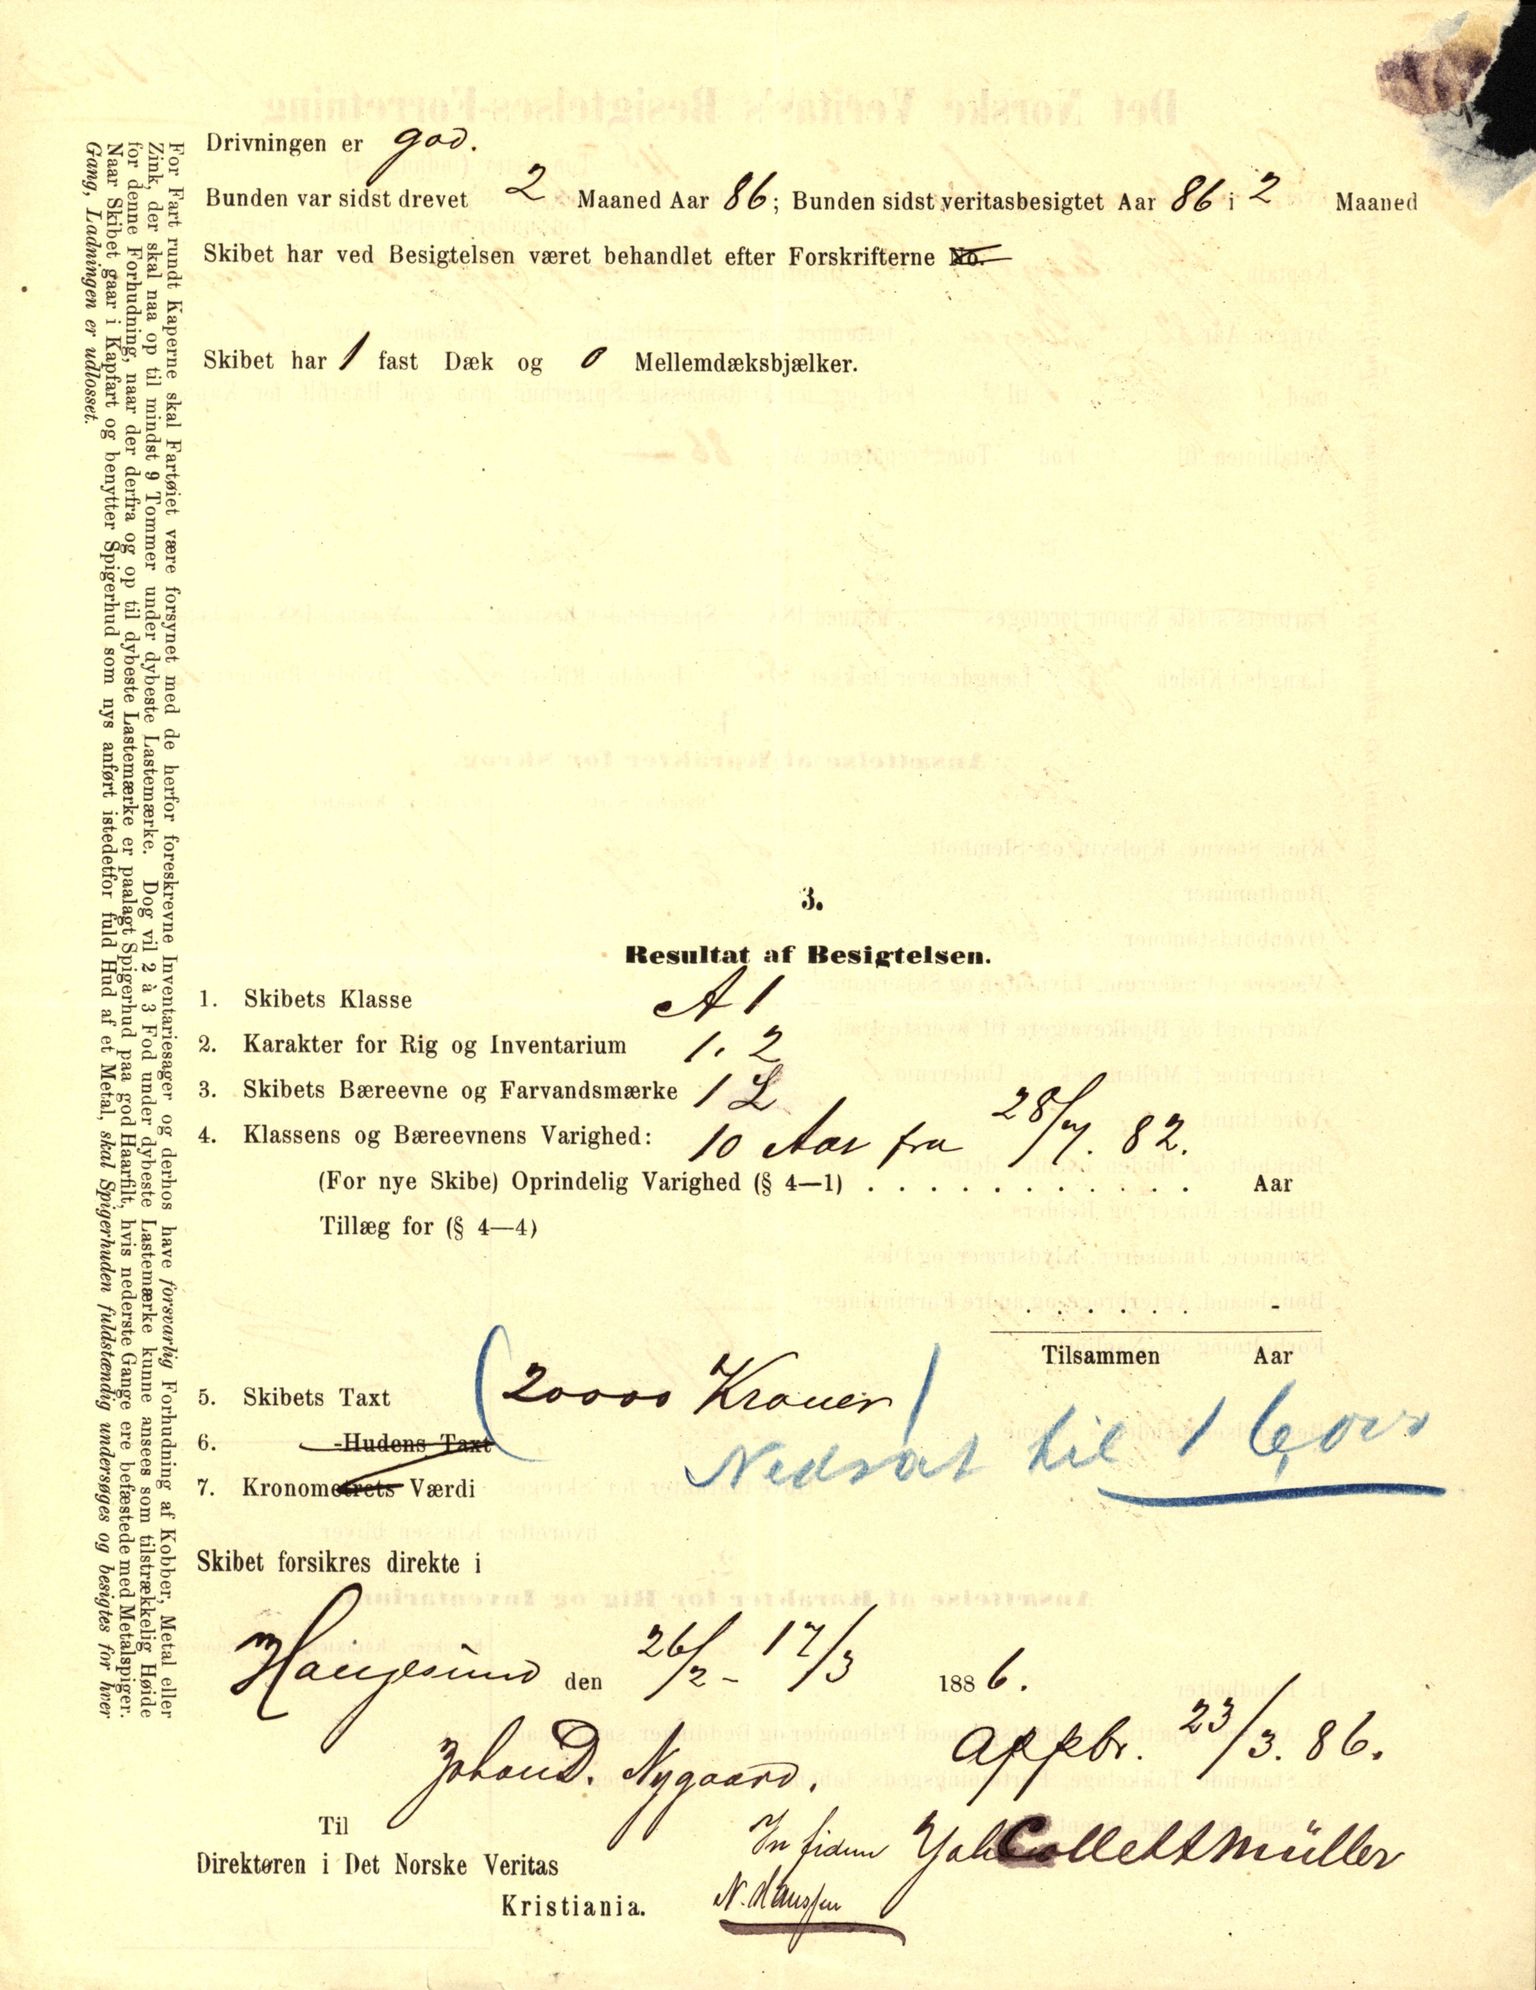 Drivningen er god.
Bunden var sidst drevet 2 Maaned Aar 86; Bunden sidst veritasbesigtet Aar 86 i 2 Maaned
Skibet har ved Besigtelsen været behandlet efter Forskrifterne No.
Skibet har 1 fast Dæk og 0 Mellemdæksbjælker.
3.
Resultat af Besigtelsen.
1. Skibets Klasse A 1
2. Karakter for Rig og Inventarium 1. 2
3. Skibets Bæreevne og Farvandsmærke 1 L
4. Klassens og Bæreevnens Varighed: 10 Aar fra 28/7. 82.
(For nye Skibe) Oprindelig Varighed (§ 4—1) . . . . . . . . . . . . Aar
Tillæg for (§ 4—4)
Tilsammen Aar
5. Skibets Taxt (20000 Kroner)
6. Hudens Taxt
Nedsat til 16,000
7. Kronometrets Værdi
Skibet forsikres direkte i
Haugesund den 26/2 - 17/3 1886.
Johan D. Nygaard. Appbr. 23/3. 86.
Til
Direktøren i Det Norske Veritas
Kristiania.
In fidem Joh Collett Müller
N. Hanssen
For Fart rundt Kaperne skal Fartøiet være forsynet med de herfor foreskrevne Inventariesager og derhos have forsvarlig Forhudning af Kobber, Metal eller
Zink, der skal naa op til mindst 9 Tommer under dybeste Lastemærke. Dog vil 2 à 3 Fod under dybeste Lastemærke kunne ansees som tilstrækkelig Høide
for denne Forhudning, naar der derfra og op til dybeste Lastemærke er paalagt Spigerhud paa god Haarfilt, hvis nederste Gange ere befæstede med Metalspiger.
Naar Skibet gaar i Kapfart og benytter Spigerhud som nys anført istedetfor fuld Hud af et Metal, skal Spigerhuden fuldstændig undersøges og besigtes for hver
Gang, Ladningen er udlosset.